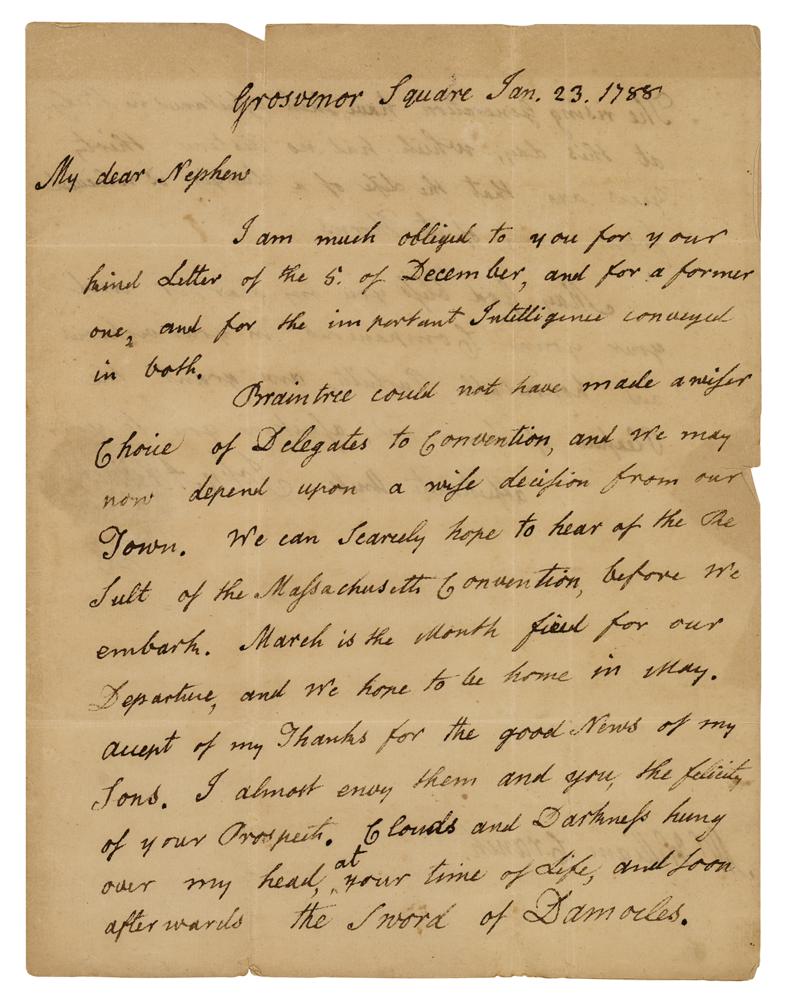 Grosvenor Square Jan. 23. 1788
My dear Nephew
I am much obliged to you for your
kind Letter of the 5. of December, and for a former
one, and for the important Intelligence conveyed
in both.
Braintree could not have made a wiser
Choice of Delegates to Convention, and We may
now depend upon a wise decision from our
Town. We can Scarcely hope to hear of the Re
Sult of the Massachusetts Convention, before We
embark. March is the Month fixed for our
Departure, and We hope to be home in May.
accept of my Thanks for the good News of my
Sons. I almost envy them and you, the felicity
of your Prospects. Clouds and Darkness hung
over my head, at your time of Life, and soon
afterwards the Sword of Damocles.